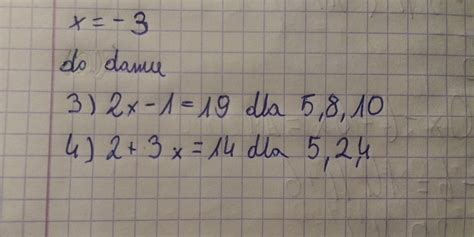 x = - 3
do domu
3) 2x - 1 = 19 dla 5, 8, 10
4) 2 + 3x = 14 dla 5, 2, 4